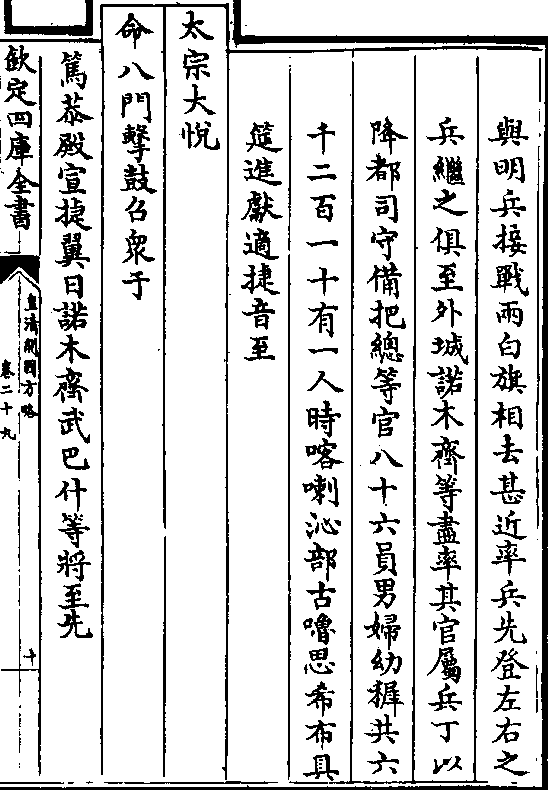 與明兵接戰兩白旗相去甚近率兵先登左右之
兵繼之俱至外城諾木齊等盡率其官屬兵丁以
降都司守備把總等官八十六員男婦幼穉共六
千二百一十有一人時喀喇沁部古嚕思希布具
筵進獻適捷音至
太宗大悅
命八門擊鼓召眾于
篤恭殿宣捷翼日諾木齊武巴什等將至先
欽定四庫全書
皇清開國方略
卷二十九
十